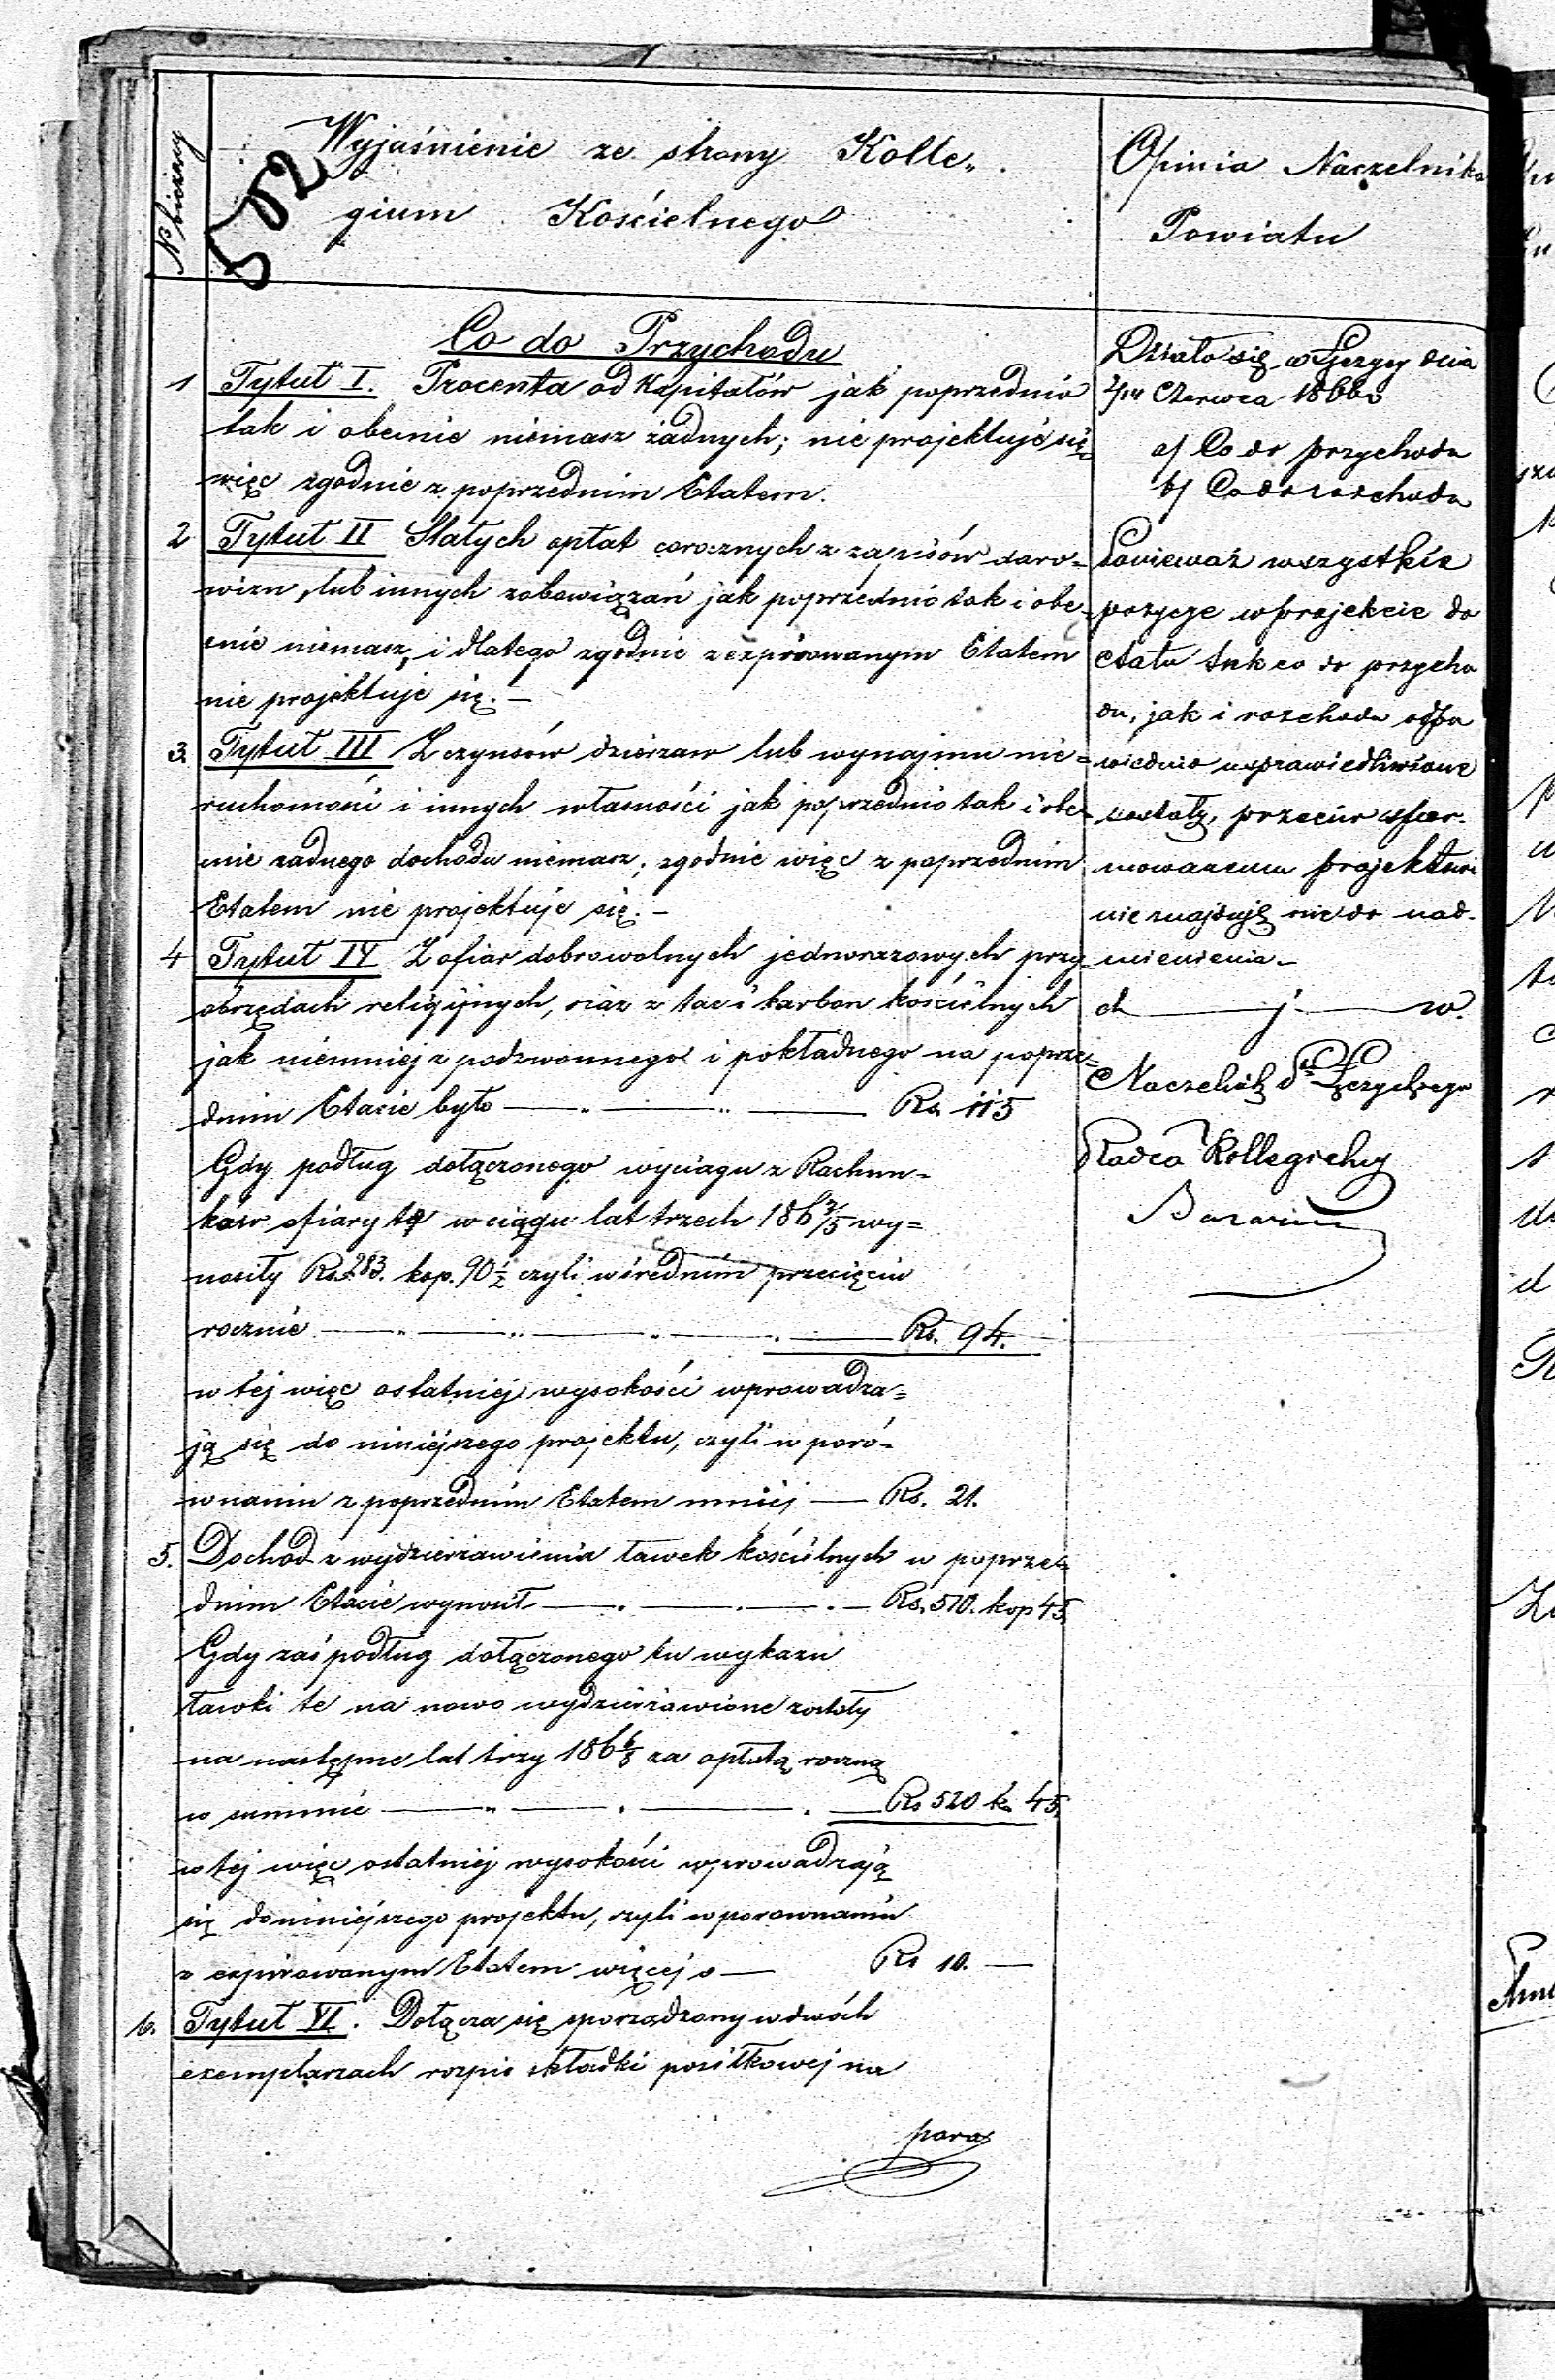 N° bieżący
502
Wyjaśnienie ze strony Kolle„
gium Kościelnego
Co do Przychodu
1 Tytuł I. Procenta od Kapitałów jak poprzednio
tak i obecnie niemasz żadnych; nie projektuje się
więc zgodnie z poprzednim Etatem.
2 Tytuł II Stałych opłat corocznych z zapisów daro=
wizn, lub innych zobowiązań jak poprzednio tak i obe=
cnie niemasz, i dlatego zgodnie z expirowanym Etatem
nie projektuje się.—
3. Tytuł III Z czynszów dzierżaw lub wynajmu nie=
ruchomości i innych własności jak poprzednio tak i obe=
cnie żadnego dochodu niemasz; zgodnie więc z poprzednim
Etatem nie projektuje się.—
4 Tytuł IV Z ofiar dobrowolnych jednorazowych przy
obrzędach religijnych, oraz z tac i karbon kościelnych
jak niemniej z podzwonnego i pokładnego na poprze=
dnim Etacie było — „ — „ — Rs. 115
Gdy podług dołączonego wyciągu z Rachun=
ków ofiary te w ciągu lat trzech 186 3/5 wy=
nosiły Rs. 283. kop. 90 1/2 czyli w średnim przecięciu
rocznie — „ — „ — „ — „ — Rs. 94.
w tej więc ostatniej wysokości wprowadza=
ją się do niniejszego projektu, czyli w poró=
wnaniu z poprzednim Etatem mniej — Rs. 21.
5. Dochod z wydzierżawienia ławek kościelnych w poprze=
dnim Etacie wynosił — . — . — . — Rs. 510. kop 45.
Gdy zaś podług dołączonego tu wykazu
ławki te na nowo wydzierżawione zostały
na następne lat trzy 186 6/8 za opłatą roczną
w summie — „ — . — . — Rs 520 k. 45.
w tej więc ostatniej wysokości wprowadzają
się do niniejszego projektu, czyli w porownaniu
z expirowanym Etatem więcej o — Rs 10. —
6. Tytuł VI. Dołącza się sporządzony w dwóch
exemplarzach rozpis składki posiłkowej na
paras
Opinia Naczelnika
Powiatu
Działo się w Łęczycy dnia
2/14 Czerwca 1866
a) Co do przychodu
b) Co do rozchodu
Ponieważ wszystkie
pozycje w projekcie do
etatu tak co do przycho
du, jak i rozchodu odpo
wiednio usprawiedliwione
zostały, przeciw sfor-
mowanemu projektowi
nie znajduję nic do nad-
mienienia.—
d — j — w.
Naczelnik Ptu Łęczyckiego
Radca Kollegialny